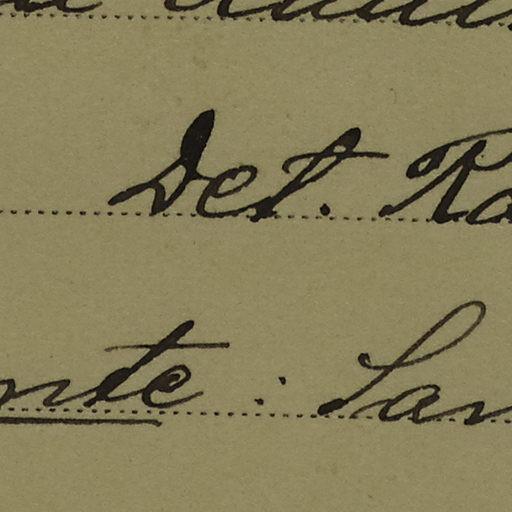 Det. Ra
nte : San